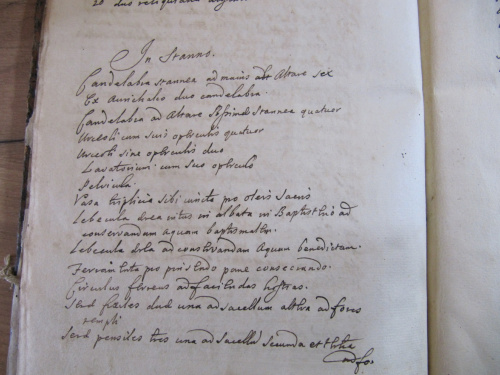 In Stanno.
Candelabra stannea ad maius Altare sex
Ex Aurichalco duo candelabra
Candelabra ad Altare Stannea quatuor
Urceoli cum suis operculis quatuor
Urceoli sine operculis duo
Lavatorium cum suo operculo
Pelvicula.
Vasa triplicia sibi iuncta pro oleis sacris
Lebecula in Baptisterio ad
conservandam aquam baptismalem.
Lebecula ad conservandam aquam benedictam.
pro pane consecrando.
Circulus ferreus ad faciendas hostias.
duae una ad sacellum altera ad fores
templi
Serae pensiles tres una ad sacella secunda et tertia